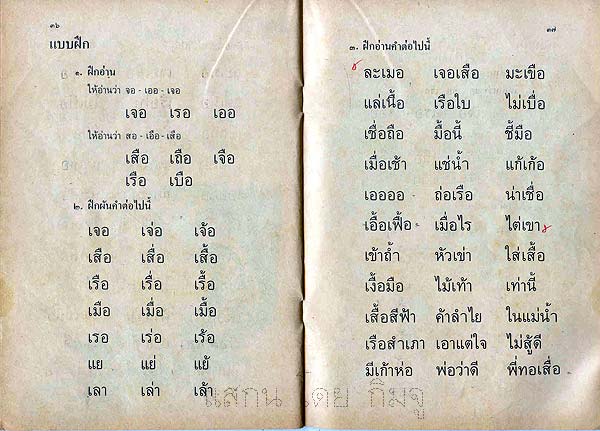 ๓๖
แบบฝึก
๑. ฝึกอ่าน
ให้อ่านว่า จอ - เออ - เจอ
เจอ เรอ เออ
ให้อ่านว่า สอ - เอือ - เสือ
เสือ เถือ เจือ
เรือ เบือ
๒. ฝึกผันคำต่อไปนี้
เจอ เจ่อ เจ้อ
เสือ เสื่อ เสื้อ
เรือ เรื่อ เรื้อ
เมือ เมื่อ เมื้อ
เรอ เร่อ เร้อ
แย แย่ แย้
เลา เล่า เล้า
๓๗
๓. ฝึกอ่านคำต่อไปนี้
ละเมอ เจอเสือ มะเขือ
แล่เนื้อ เรือใบ ไม่เบื่อ
เชื่อถือ มื้อนี้ ชี้มือ
เมื่อเช้า แช่น้ำ แก้เก้อ
เออออ ถ่อเรือ น่าเชื่อ
เอื้อเฟื้อ เมื่อไร ไต่เขา
เข้าถ้ำ หัวเข่า ใส่เสื้อ
เงื้อมือ ไม้เท้า เท่านี้
เสื้อสีฟ้า ค้าลำไย ในแม่น้ำ
เรือสำเภา เอาแต่ใจ ไม่สู้ดี
มีเก้าห่อ พ่อว่าดี พี่ทอเสื่อ
แสกน โดย กิมจู